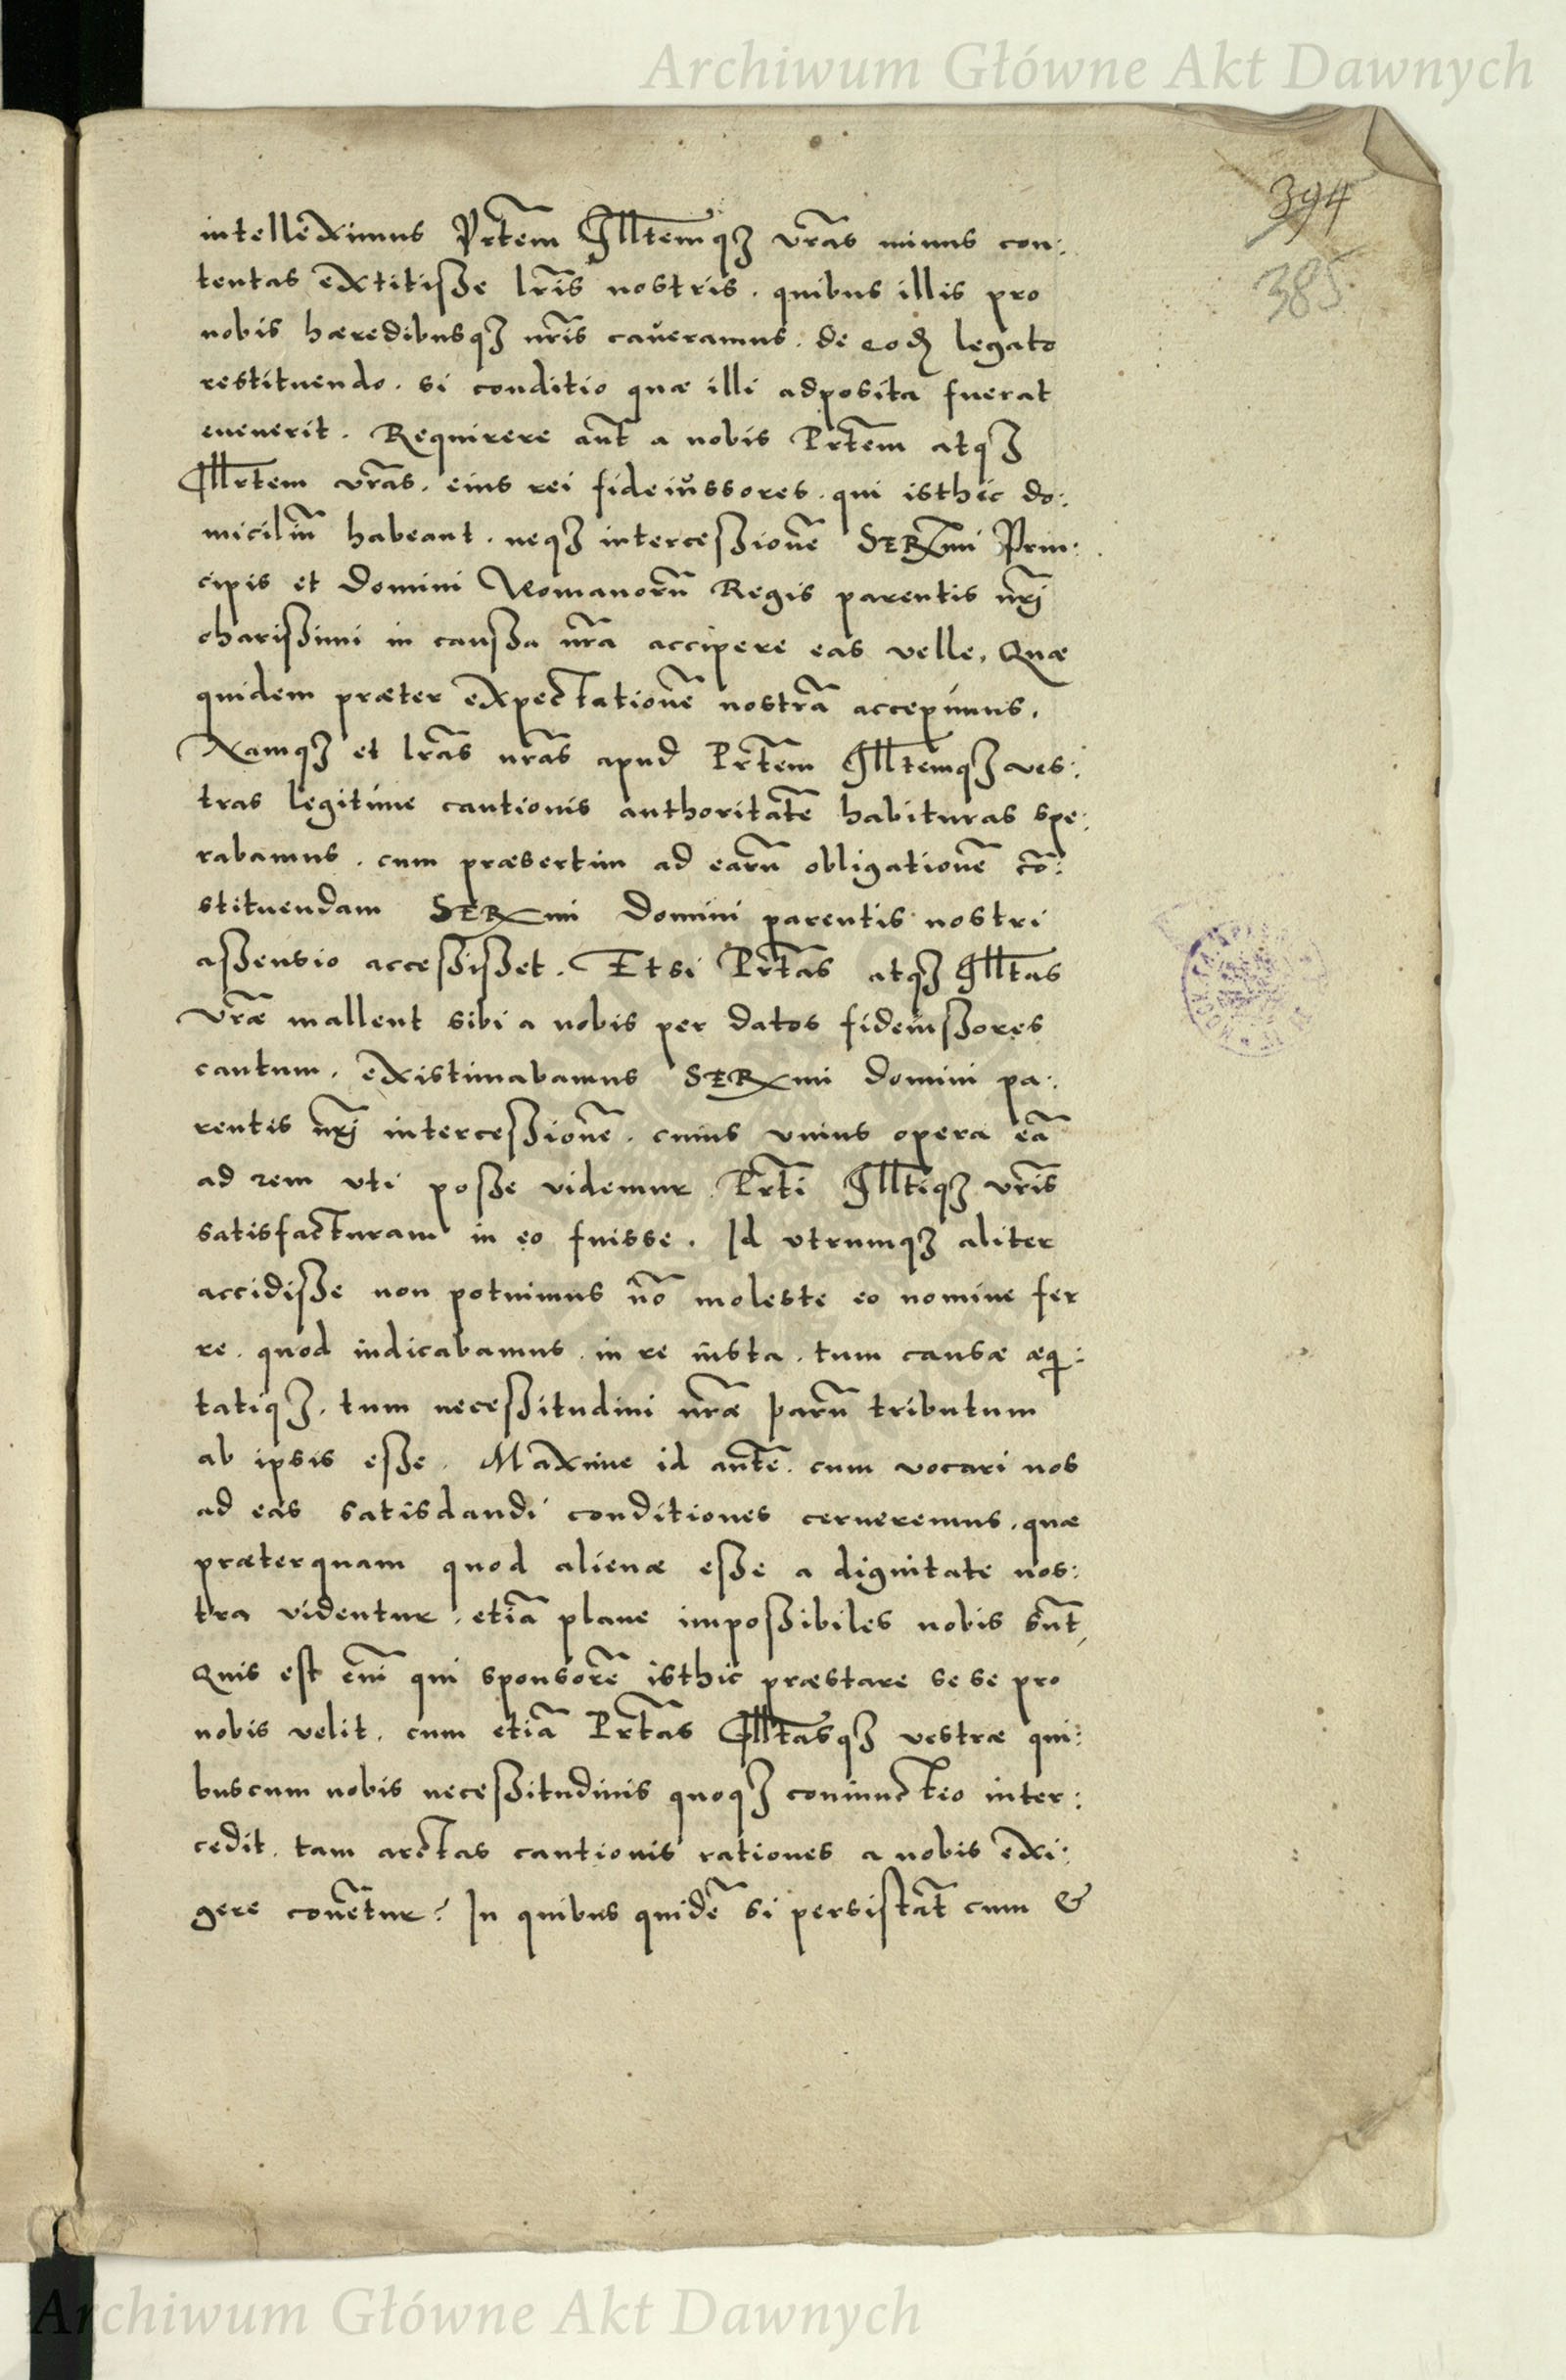 Archiwum Główne Akt Dawnych
394
385
intelleximus Prtẽm Illtemqꝫ vrãs minus con:
tentas extitisse lrĩs nostris. quibus illis pro
nobis hæredibusqꝫ nrĩs caveramus. de eod legato
restituendo. si conditio quæ illi adposita fuerat
evenerit. Requirere aut̃ a nobis Prtẽm atqꝫ
Illrtem vrãs. eius rei fideiussores. qui isthic do:
miciliũ habeant. neqꝫ intercessionẽ SERmi Prin:
cipis et domini Romanorũ Regis parentis nrĩ
charissimi in caussa nrã accipere eas velle. Quæ
quidem præter expectationẽ nostrã accepimus.
Namqꝫ et lrãs nrãs apud Prtẽm Illtemqꝫ ves:
tras legitime cautionis authoritatẽ habituras spe:
rabamus. cum præsertim ad earũ obligationẽ cõ:
stituendam SERmi domini parentis nostri
assensio accessisset. Etsi Prtãs atqꝫ Illtas
Vrãe mallent sibi a nobis per datos fideiussores
cautum. existimabamus SERmi domini pa:
rentis nrĩ intercessionẽ. cuius unius opera eã
ad rem uti posse videmur Prtĩ Illtiqꝫ vrĩs
satisfacturam in eo fuisse. Id utrumqꝫ aliter
accidisse non potuimus nõ moleste eo nomine fer
re. quod iudicabamus. in re iusta. tum causæ æqi:
tatiqꝫ. tum necessitudini nrãe parũ tributum
ab ipsis esse. Maxime id autẽ. cum vocari nos
ad eas satisdandi conditiones cerneremus. quæ
præterquam quod alienæ esse a dignitate nos:
tra videntur. etiã plane impossibiles nobis sũt,
Quis est enĩ qui sponsorẽ isthic præstare sese pro
nobis velit. cum etiã Prtãs Illtasqꝫ vestræ qui:
buscum nobis necessitudinis quoqꝫ coniunctio inter:
cedit. tam arctas cautionis rationes a nobis exi:
gere conẽtur? In quibus quidẽ si persistãt cum &
Archiwum Główne Akt Dawnych